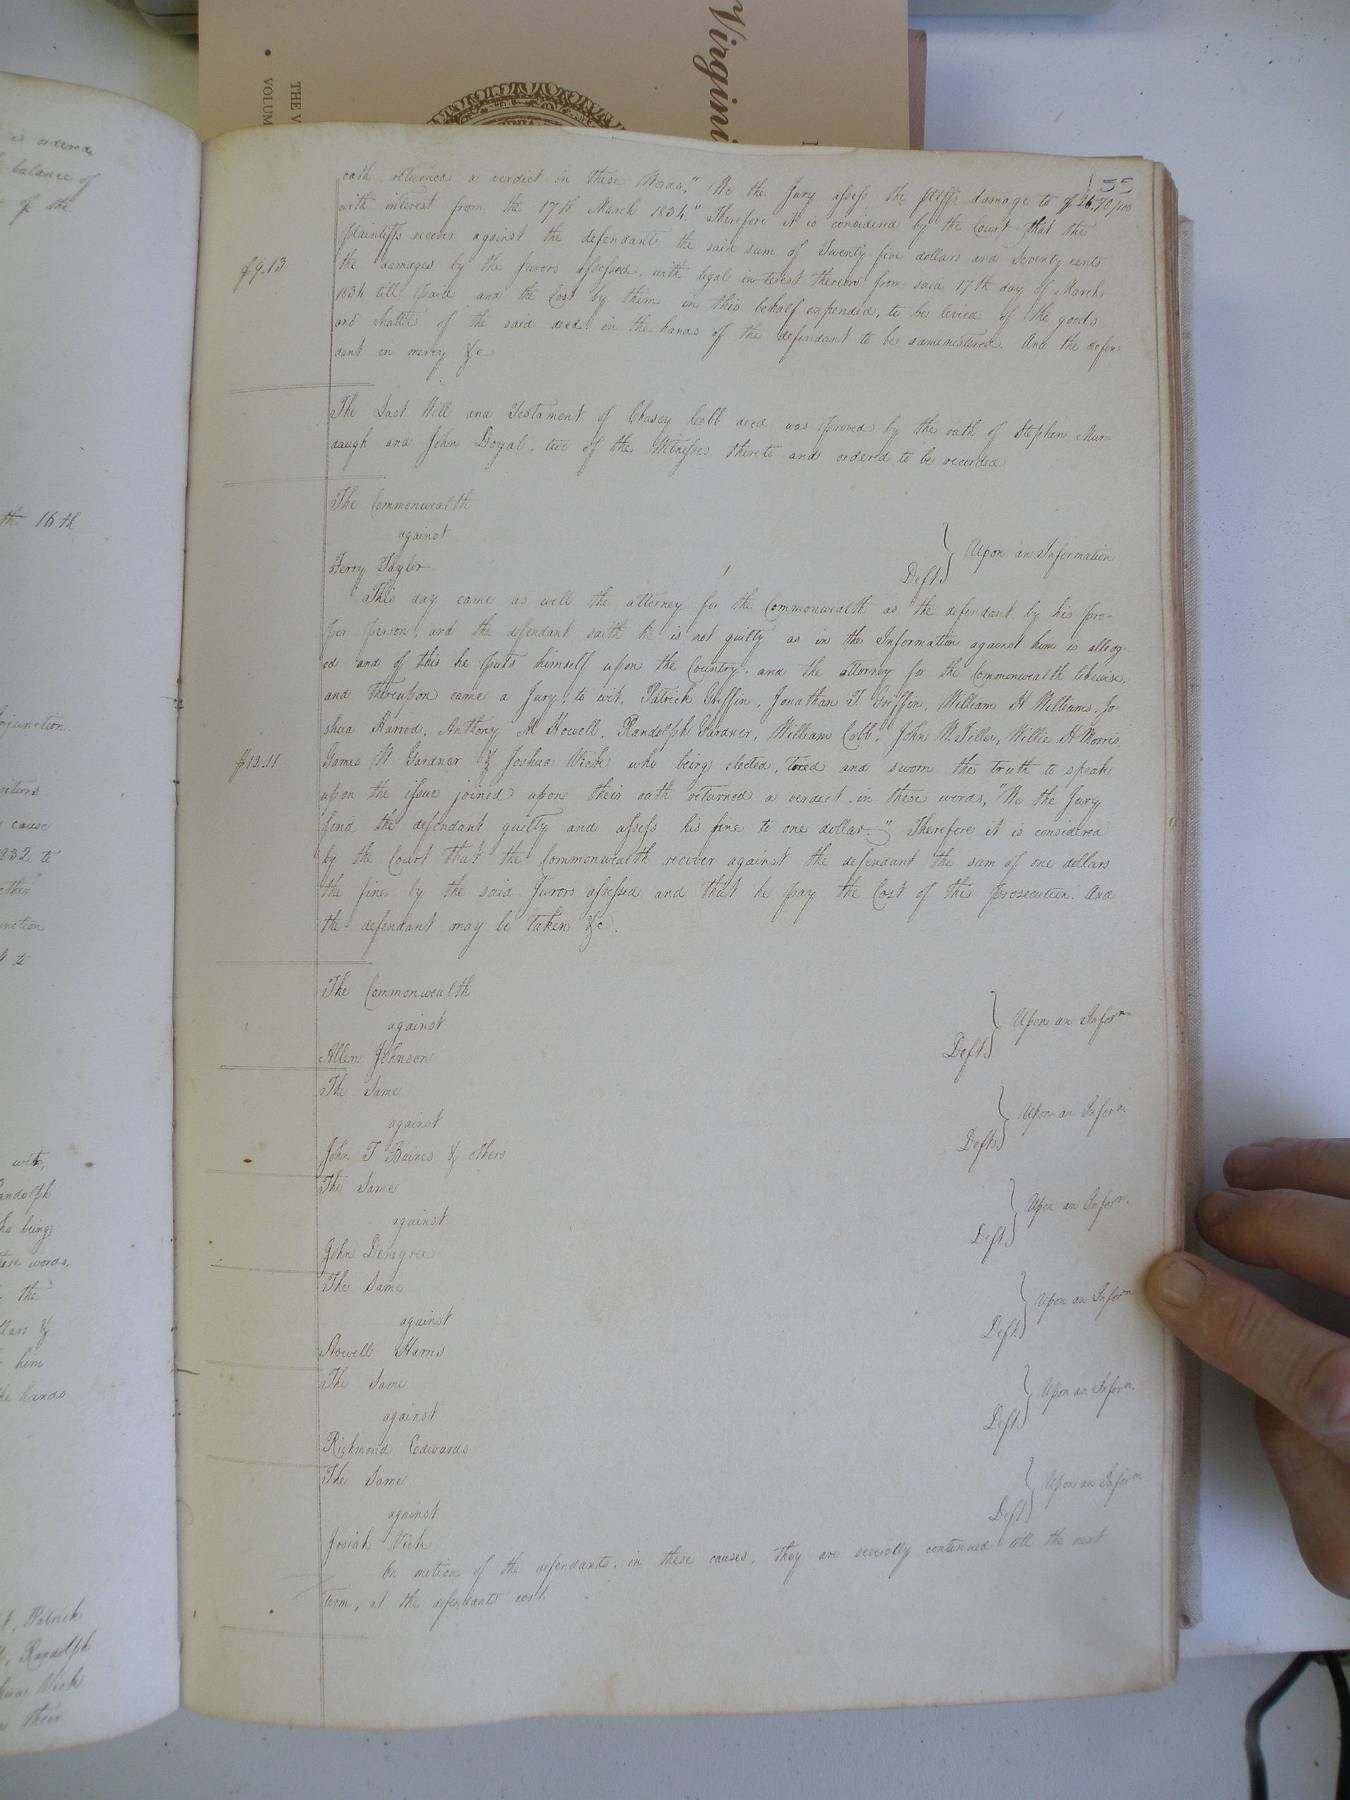 Virgini
THE V
VOLUM
is ordered
balance of
of the
th 16th
junction
cause
1832 to
other
nction
t to
with
andolph
ho being
these words,
the
llars &
him
the hands
t, Patrick
Randolph
hua Vick
their
155
oath returned a verdict in these Words, "We the Jury assess the pltffs damage to $25.70/100
with interest from the 17th March 1834." Therefore it is considered by the Court that the
plaintiffs recover against the defendant the said sum of Twenty-five dollars and Seventy cents
$9.13
the damages by the Jurors assessed, with legal interest thereon from said 17th day of March
1834 till paid and the Cost by them in this behalf expended, to be levied of the goods
and chattels of the said decd. in the hands of the defendant to be administered. And the defen-
dant in mercy &c
The Last Will and Testament of Chasey Cobb decd was proved by the oath of Stephen Mur-
daugh and John Doyal, two of the Witnesses thereto and ordered to be recorded
The Commonwealth
against
Terry Tayler Deft. } Upon an Information
This day came as well the attorney for the Commonwealth as the defendant by his pro-
per person, and the defendant saith he is not guilty as in the Information against him is alledg-
ed and of this he puts himself upon the Country, and the attorney for the Commonwealth likewise,
and thereupon came a Jury, to wit, Patrick Griffin, Jonathan T. Griffin, William H Williams, Jo-
shua Harrod, Anthony M Howell, Randolph Gardner, William Cobb, John W. Tiller, Willie H Morris,
$13.11
James W Gardner & Joshua Vick who being elected, tried and sworn the truth to speak
upon the issue joined upon their oath returned a verdict in these words, "We the Jury
find the defendant guilty and assess his fine to one dollar." Therefore it is considered
by the Court that the Commonwealth recover against the defendant the sum of one dollars
the fine by the said Jurors assessed and that he pay the Cost of this prosecution. And
the defendant may be taken &c.
The Commonwealth
against
Allen Johnson Deft. } Upon an Inform.
The Same
against
John T Baines & others Defts } Upon an Inform.
The Same
against
John Denegree Deft. } Upon an Inform.
The Same
against
Howell Harris Deft. } Upon an Inform.
The Same
against
Richmond Edwards Deft. } Upon an Inform.
The Same
against
Josiah Vick Deft. } Upon an Inform.
On motions of the defendants, in these causes, they are severally continued till the next
term, at the defendants cost.